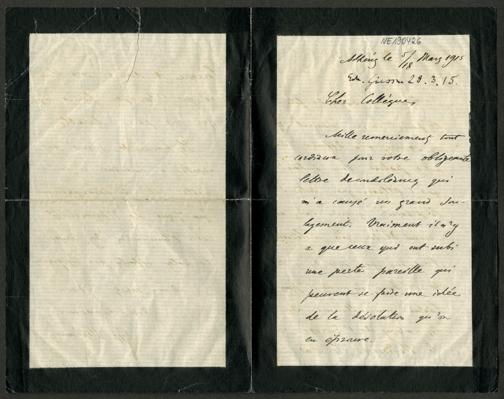 NE130426
Athènes le 5/18 Mars 1915
28.3.15.
Cher Collègue,
Mille remerciements tout
cordiaux pour votre obligeante
lettre de condoléances, qui
m'a causé un grand sou-
lagement. Vraiment il n'y
a que ceux qui ont subi
une perte pareille qui
peuvent se faire une idée
de la désolation qu'on
en éprouve.